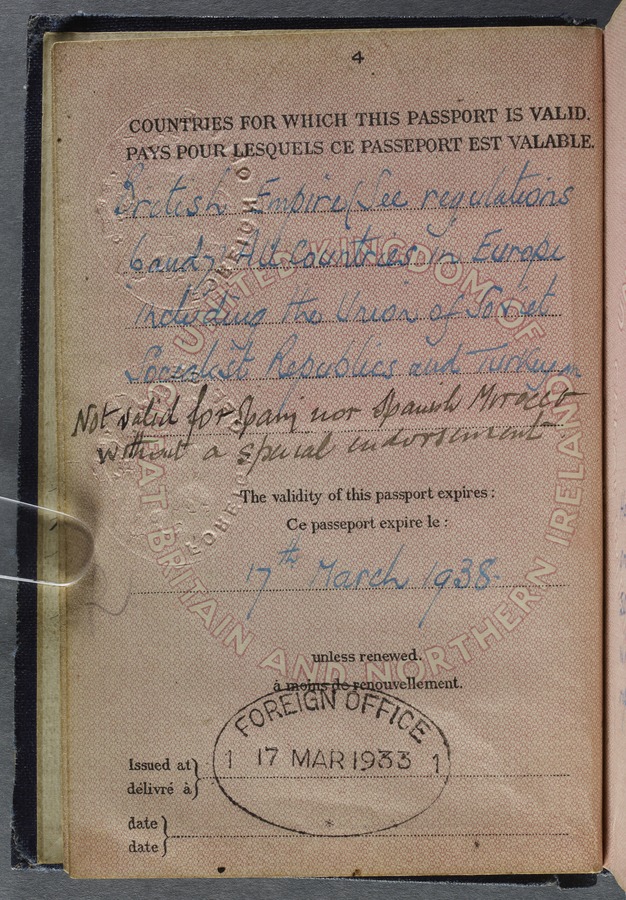 4
COUNTRIES FOR WHICH THIS PASSPORT IS VALID.
PAYS POUR LESQUELS CE PASSEPORT EST VALABLE.
British Empire (See regulations
6 and 7) All Countries in Europe
including the Union of Soviet
Socialist Republics and Turkey
Not valid for Spain nor Spanish Morocco
without a special endorsement
The validity of this passport expires:
Ce passeport expire le:
17th March 1938.
unless renewed.
à moins de renouvellement.
FOREIGN OFFICE
1 17 MAR 1933 1
*
Issued at
délivré à
date
date
UNITED KINGDOM OF
GREAT BRITAIN AND NORTHERN IRELAND
FOREIGN OFFICE